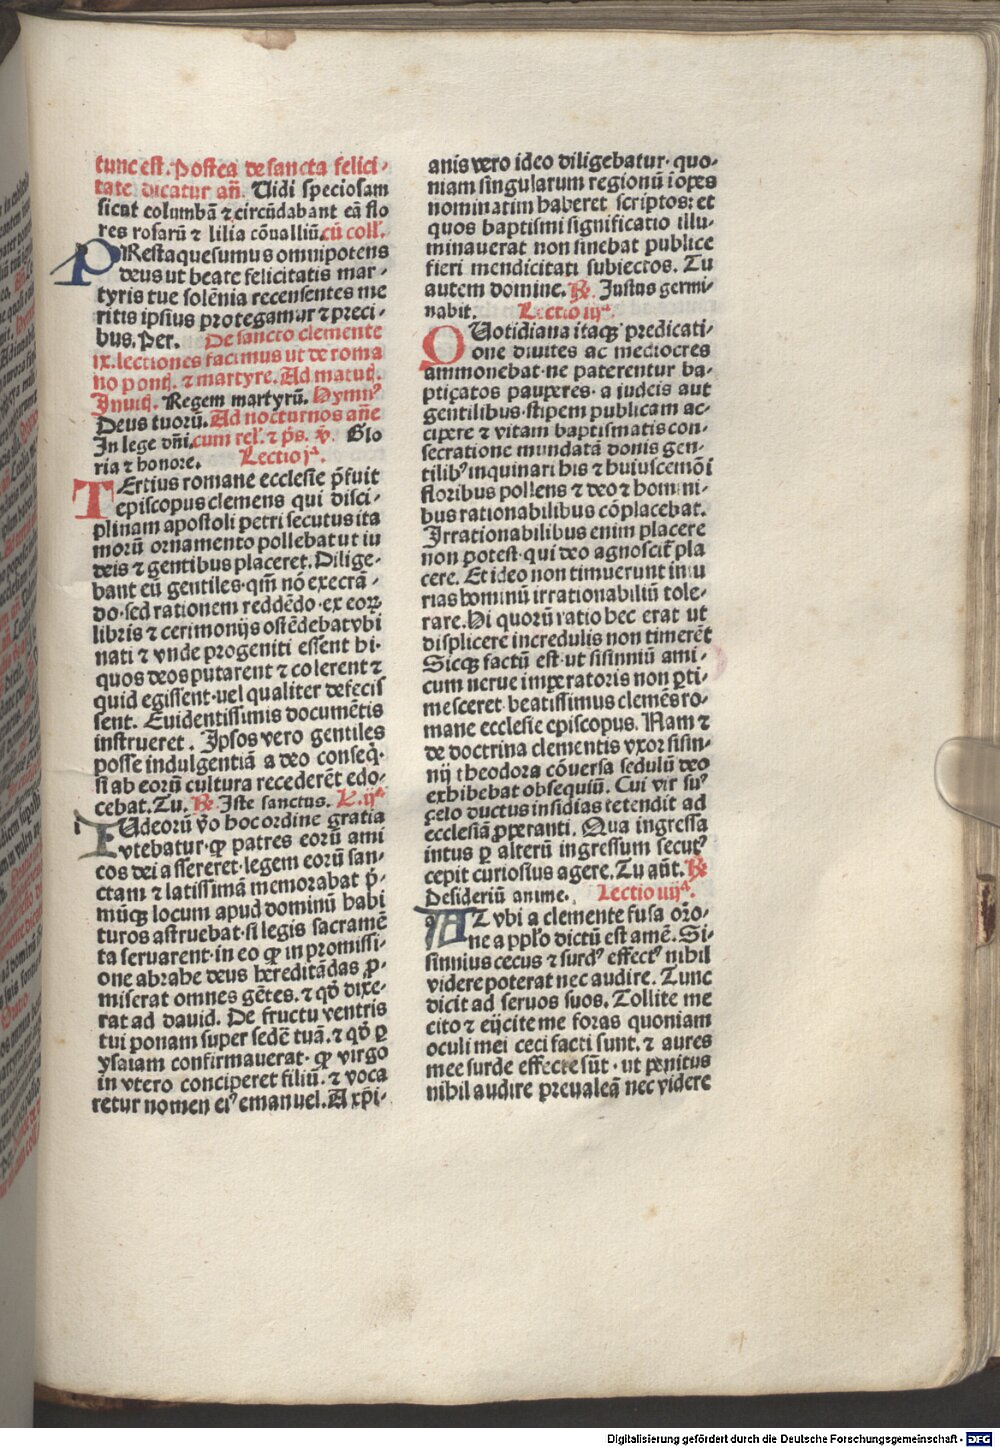 tunc est. Postea de sancta felici-
tate dicatur añ. Uidi speciosam
sicut columbã ⁊ circũdabant eã flo
res rosarũ ⁊ lilia cõualliũ. cũ coll'.
PRestaquesumus omnipotens
deus ut beate felicitatis mar-
tyris tue solẽnia recensentes me
ritis ipsius protegamur ⁊ preci-
bus. Per. De sancto clemente
ix. lectiones facimus ut de roma
no ponti. ⁊ martyre. Ad matuti.
Inuiti. Regem martyrũ. Hymnꝰ
Deus tuorũ. Ad nocturnos añe
In lege dñi. cum rel'. ⁊ p̃s. v̾. Glo
ria ⁊ honore. Lectio jª.
TErtius romane ecclesie p̃fuit
episcopus clemens qui disci-
plinam apostoli petri secutus ita
morũ ornamento pollebat ut iu
deis ⁊ gentibus placeret. Dilige-
bant eũ gentiles· qm̃ nõ execrã-
do· sed rationem reddẽdo· ex eoꝝ
libris ⁊ cerimonijs ostẽdebat vbi
nati ⁊ vnde progeniti essent hi·
quos deos putarent ⁊ colerent ⁊
quid egissent· uel qualiter defecis
sent. Euidentissimis documẽtis
instrueret. Ipsos vero gentiles
posse indulgentiã a deo conseq̇·
si ab eorũ cultura recederẽt edo-
cebat. Tu. ℞. Iste sanctus. L. ijª
IUdeorũ v̾o hoc ordine gratia
vtebatur· ꝙ patres eorũ ami
cos dei assereret· legem eorũ san-
ctam ⁊ latissimã memorabat p̃-
mũqȝ locum apud dominũ habi
turos astruebat· si legis sacramẽ
ta seruarent· in eo ꝙ in promissi-
one abrahe deus hereditãdas ꝓ-
miserat omnes gẽtes. ⁊ qõ dixe-
rat ad dauid. De fructu ventris
tui ponam super sedẽ tuã. ⁊ qõ ꝑ
ysaiam confirmauerat· ꝙ virgo
in vtero conciperet filiũ. ⁊ voca
retur nomen eiꝰ emanuel. A xp̃i-
anis vero ideo diligebatur· quo-
niam singularum regionũ iopes
nominatim haberet scriptos: et
quos baptismi significatio illu-
minauerat non sinebat publice
fieri mendicitati subiectos. Tu
autem domine. ℞. Justus germi-
nabit. Lectio iijª.
QUotidiana itaqȝ predicati-
one diuites ac mediocres
ammonebat· ne paterentur ba-
ptiçatos pauperes· a iudeis aut
gentilibus· stipem publicam ac-
cipere ⁊ vitam baptismatis con-
secratione mundatã donis gen-
tilibꝰ inquinari his ⁊ huiuscemõi
floribus pollens ⁊ deo ⁊ homini-
bus rationabilibus cõplacebat.
Irrationabilibus enim placere
non potest· qui deo agnoscit̃ pla
cere. Et ideo non timuerunt iniu
rias hominũ irrationabiliũ tole-
rare. Hi quorũ ratio hec erat ut
displicere incredulis non timerẽt
Sicqȝ factũ est· ut sisinniũ ami-
cum nerue imperatoris non ꝑti-
mesceret beatissimus clemẽs ro-
mane ecclesie episcopus. Nam ⁊
de doctrina clementis vxor sisin-
nij theodora cõuersa sedulũ deo
exhibebat obsequiũ. Cui vir suꝰ
çelo ductus insidias tetendit ad
ecclesiã ꝓperanti. Qua ingressa
intus ꝑ alterũ ingressum secutꝰ
cepit curiosius agere. Tu aũt. ℞
Desideriũ anime. Lectio iiijª.
AT vbi a clemente fusa or̃o-
ne a pp̃lo dictũ est amẽ. Si-
sinnius cecus ⁊ surdꝰ effectꝰ nihil
videre poterat nec audire. Tunc
dicit ad seruos suos. Tollite me
cito ⁊ eijcite me foras quoniam
oculi mei ceci facti sunt. ⁊ aures
mee surde effecte sũt· ut penitus
nihil audire preualeã nec videre
Digitalisierung gefördert durch die Deutsche Forschungsgemeinschaft - DFG